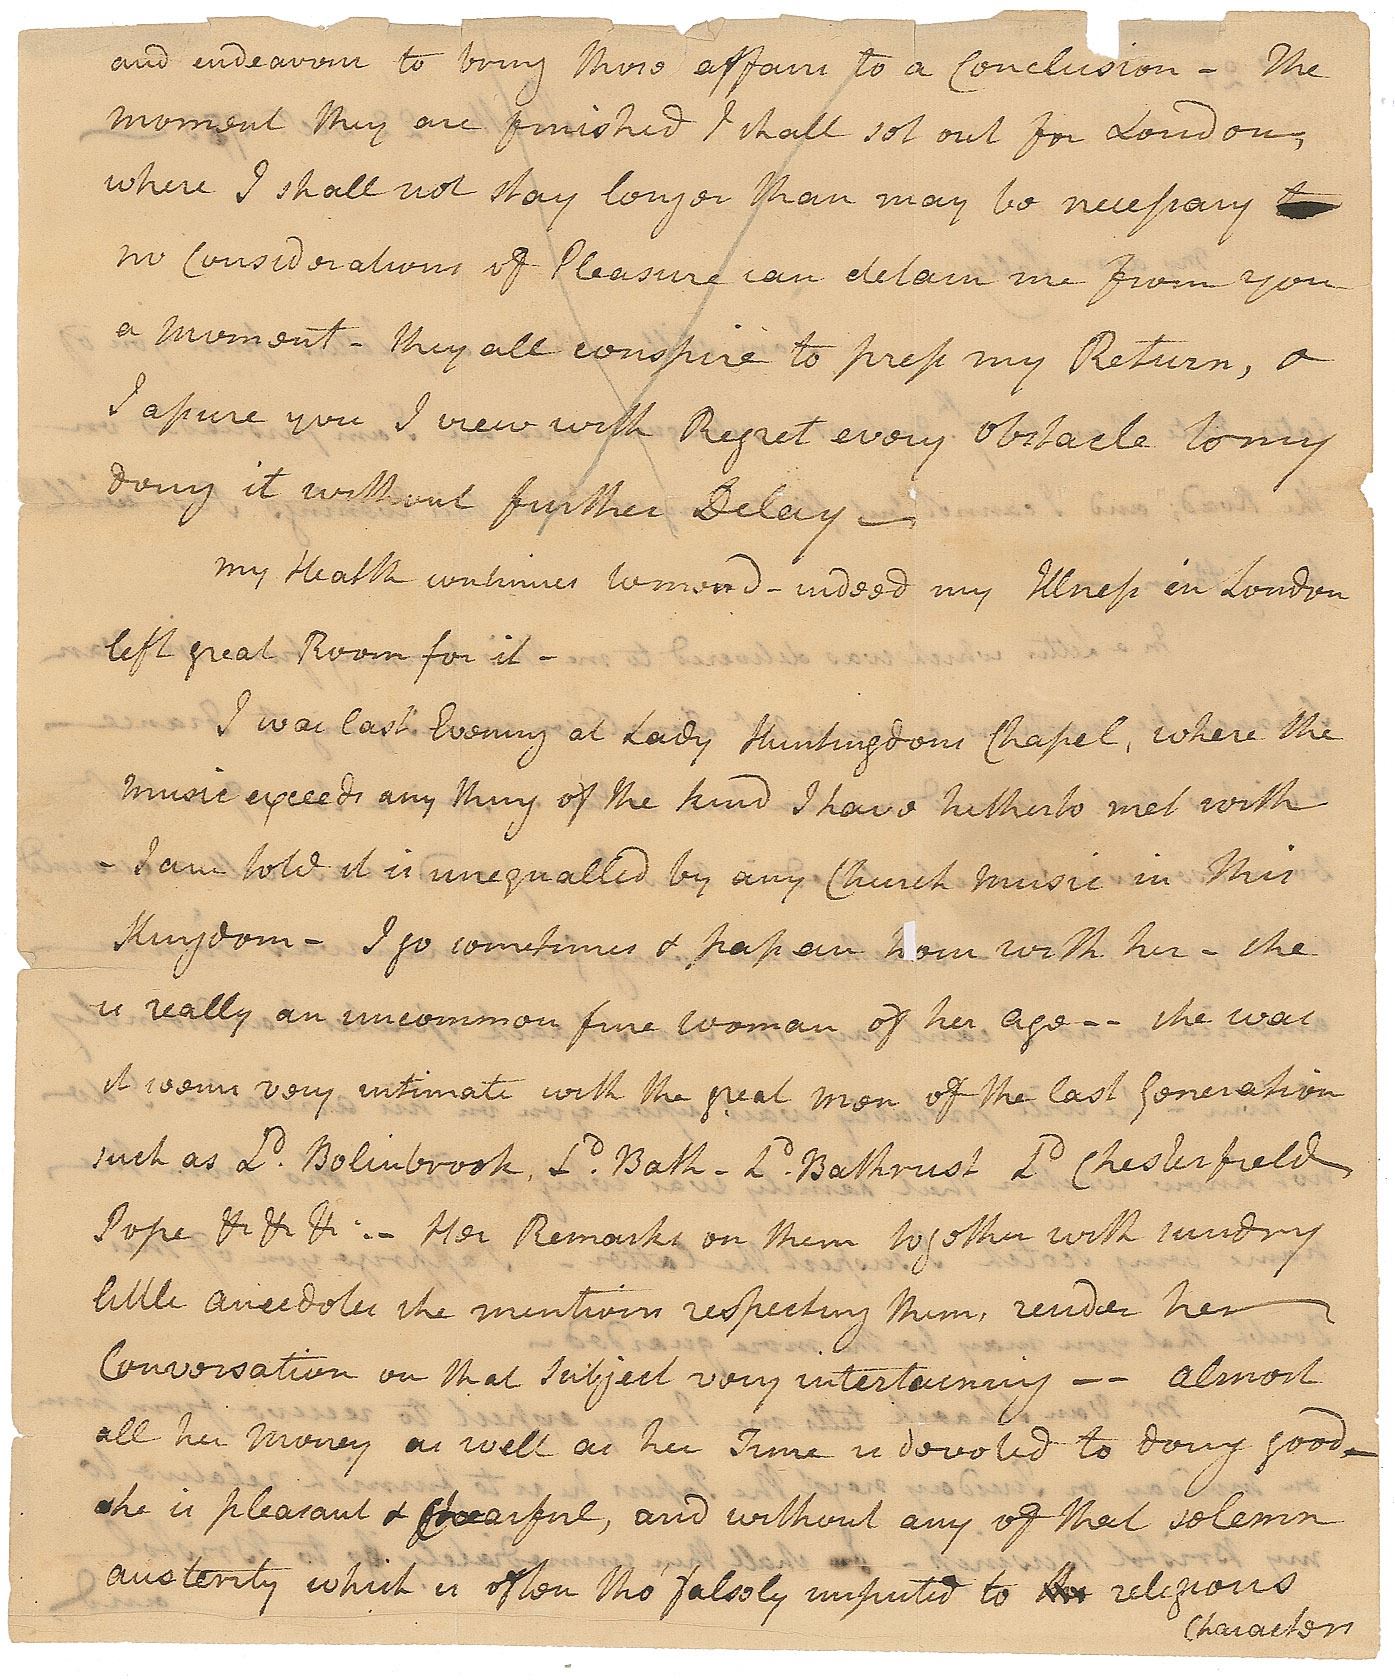 and endeavour to bring those affairs to a Conclusion – The
moment they are finished I shall set out for London,
where I shall not stay longer than may be necessary
no Considerations of Pleasure can detain me from you
a moment – they all conspire to press my Return, &
I assure you I view with Regret every obstacle to my
doing it without further Delay –
my Health continues to mend – indeed my Illness in London
left great Room for it –
I was last Evening at Lady Huntingdons Chapel, where the
music exceeds any thing of the kind I have hitherto met with
– I am told it is unequalled by any Church music in this
Kingdom – I go sometimes & pass an hour with her – she
is really an uncommon fine woman of her age -- she was
it seems very intimate with the great men of the last Generation
such as Ld. Bolinbrook, Ld. Bath – Ld. Bathrust Ld Chesterfield,
Pope &c &c &c. – Her Remarks on them together with sundry
little anecdotes she mentions respecting them, render her
Conversation on that subject very intertaining -- almost
all her money as well as her Time is devoted to doing good –
she is pleasant & chearful, and without any of that solemn
austerity which is often tho' falsely imputed to religious
Characters